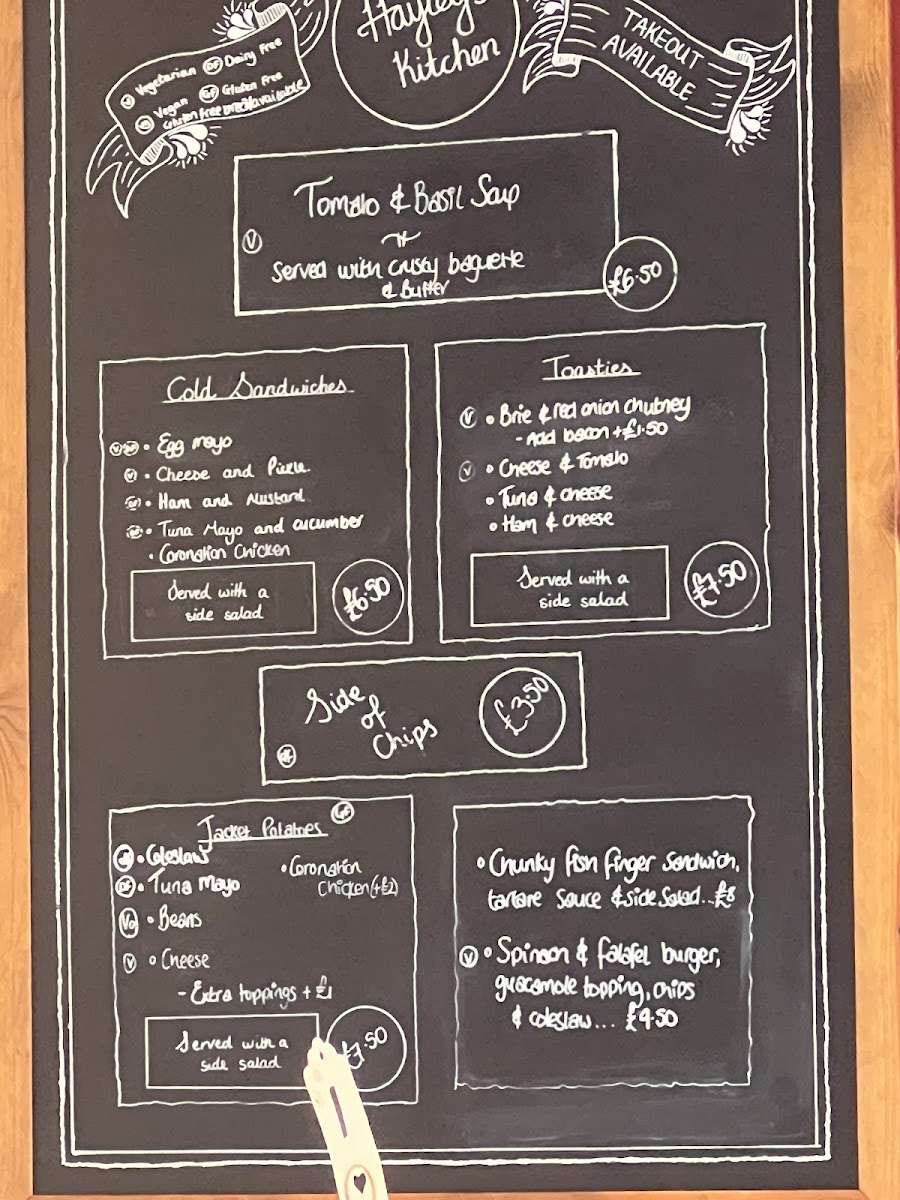 Hayley's
Kitchen
V Vegetarian DF Dairy Free
VG Vegan GF Gluten Free
Gluten free bread available
TAKEOUT
AVAILABLE
Tomato & Basil Soup
V
Served with crusty baguette
& Butter
£6.50
Cold Sandwiches
V DF • Egg mayo
V • Cheese and Pickle
DF • Ham and Mustard
DF • Tuna Mayo and cucumber
• Coronation Chicken
Served with a
side salad
£6.50
Toasties
V • Brie & red onion chutney
- Add bacon + £1.50
V • Cheese & Tomato
• Tuna & cheese
• Ham & cheese
Served with a
side salad
£7.50
Side
of
Chips
DF
£3.50
Jacket Potatoes GF
• Coleslaw
DF • Tuna Mayo
• Coronation
Chicken (+£2)
VG • Beans
V • Cheese
- Extra toppings + £1
Served with a
side salad
£7.50
• Chunky fish finger sandwich,
tartare sauce & side salad...£8
V • Spinach & falafel burger,
guacamole topping, chips
& coleslaw... £9.50